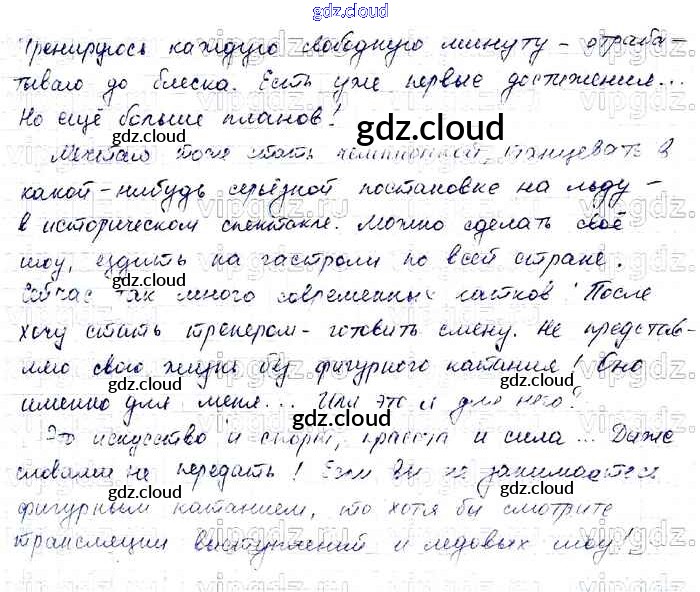 gdz.cloud
Тренируюсь каждую свободную минуту – отраба-
тываю до блеска. Есть уже первые достижения...
Но ещё больше планов!
gdz.cloud
Мечтаю тоже стать чемпионкой, танцевать в
какой-нибудь серьёзной постановке на льду –
в историческом спектакле. Можно сделать своё
шоу, ездить на гастроли по всей стране.
gdz.cloud gdz.cloud
Сейчас так много современных катков! После
хочу стать тренером – готовить смену. Не представ-
ляю свою жизнь без фигурного катания! Оно
gdz.cloud gdz.cloud
именно для меня... Или это я для него?
gdz.cloud
Это искусство и спорт, красота и сила... Даже
словами не передать! Если вы не занимаетесь
gdz.cloud gdz.cloud
фигурным катанием, то хотя бы смотрите
трансляции выступлений и ледовых шоу!
gdz.cloud gdz.cloud